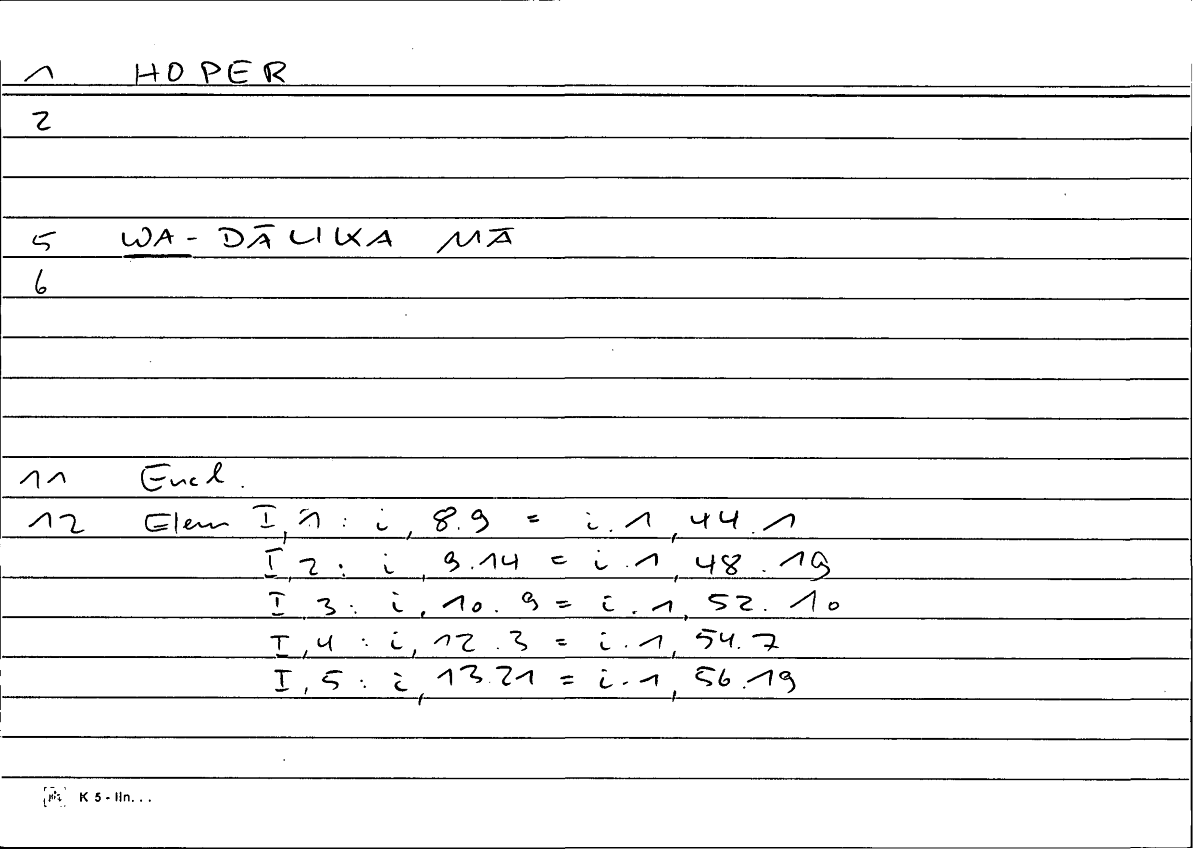 1 HOPER
2
5 WA-DĀLIKA MĀ
6
11 Eucl.
12 Elem I,1: i, 8.9 = i.1, 44.1
I,2: i, 9.14 = i.1, 48.19
I,3: i, 10.9 = i.1, 52.10
I,4: i, 12.3 = i.1, 54.7
I,5: i, 13.21 = i.1, 56.19
K 5 - lin...